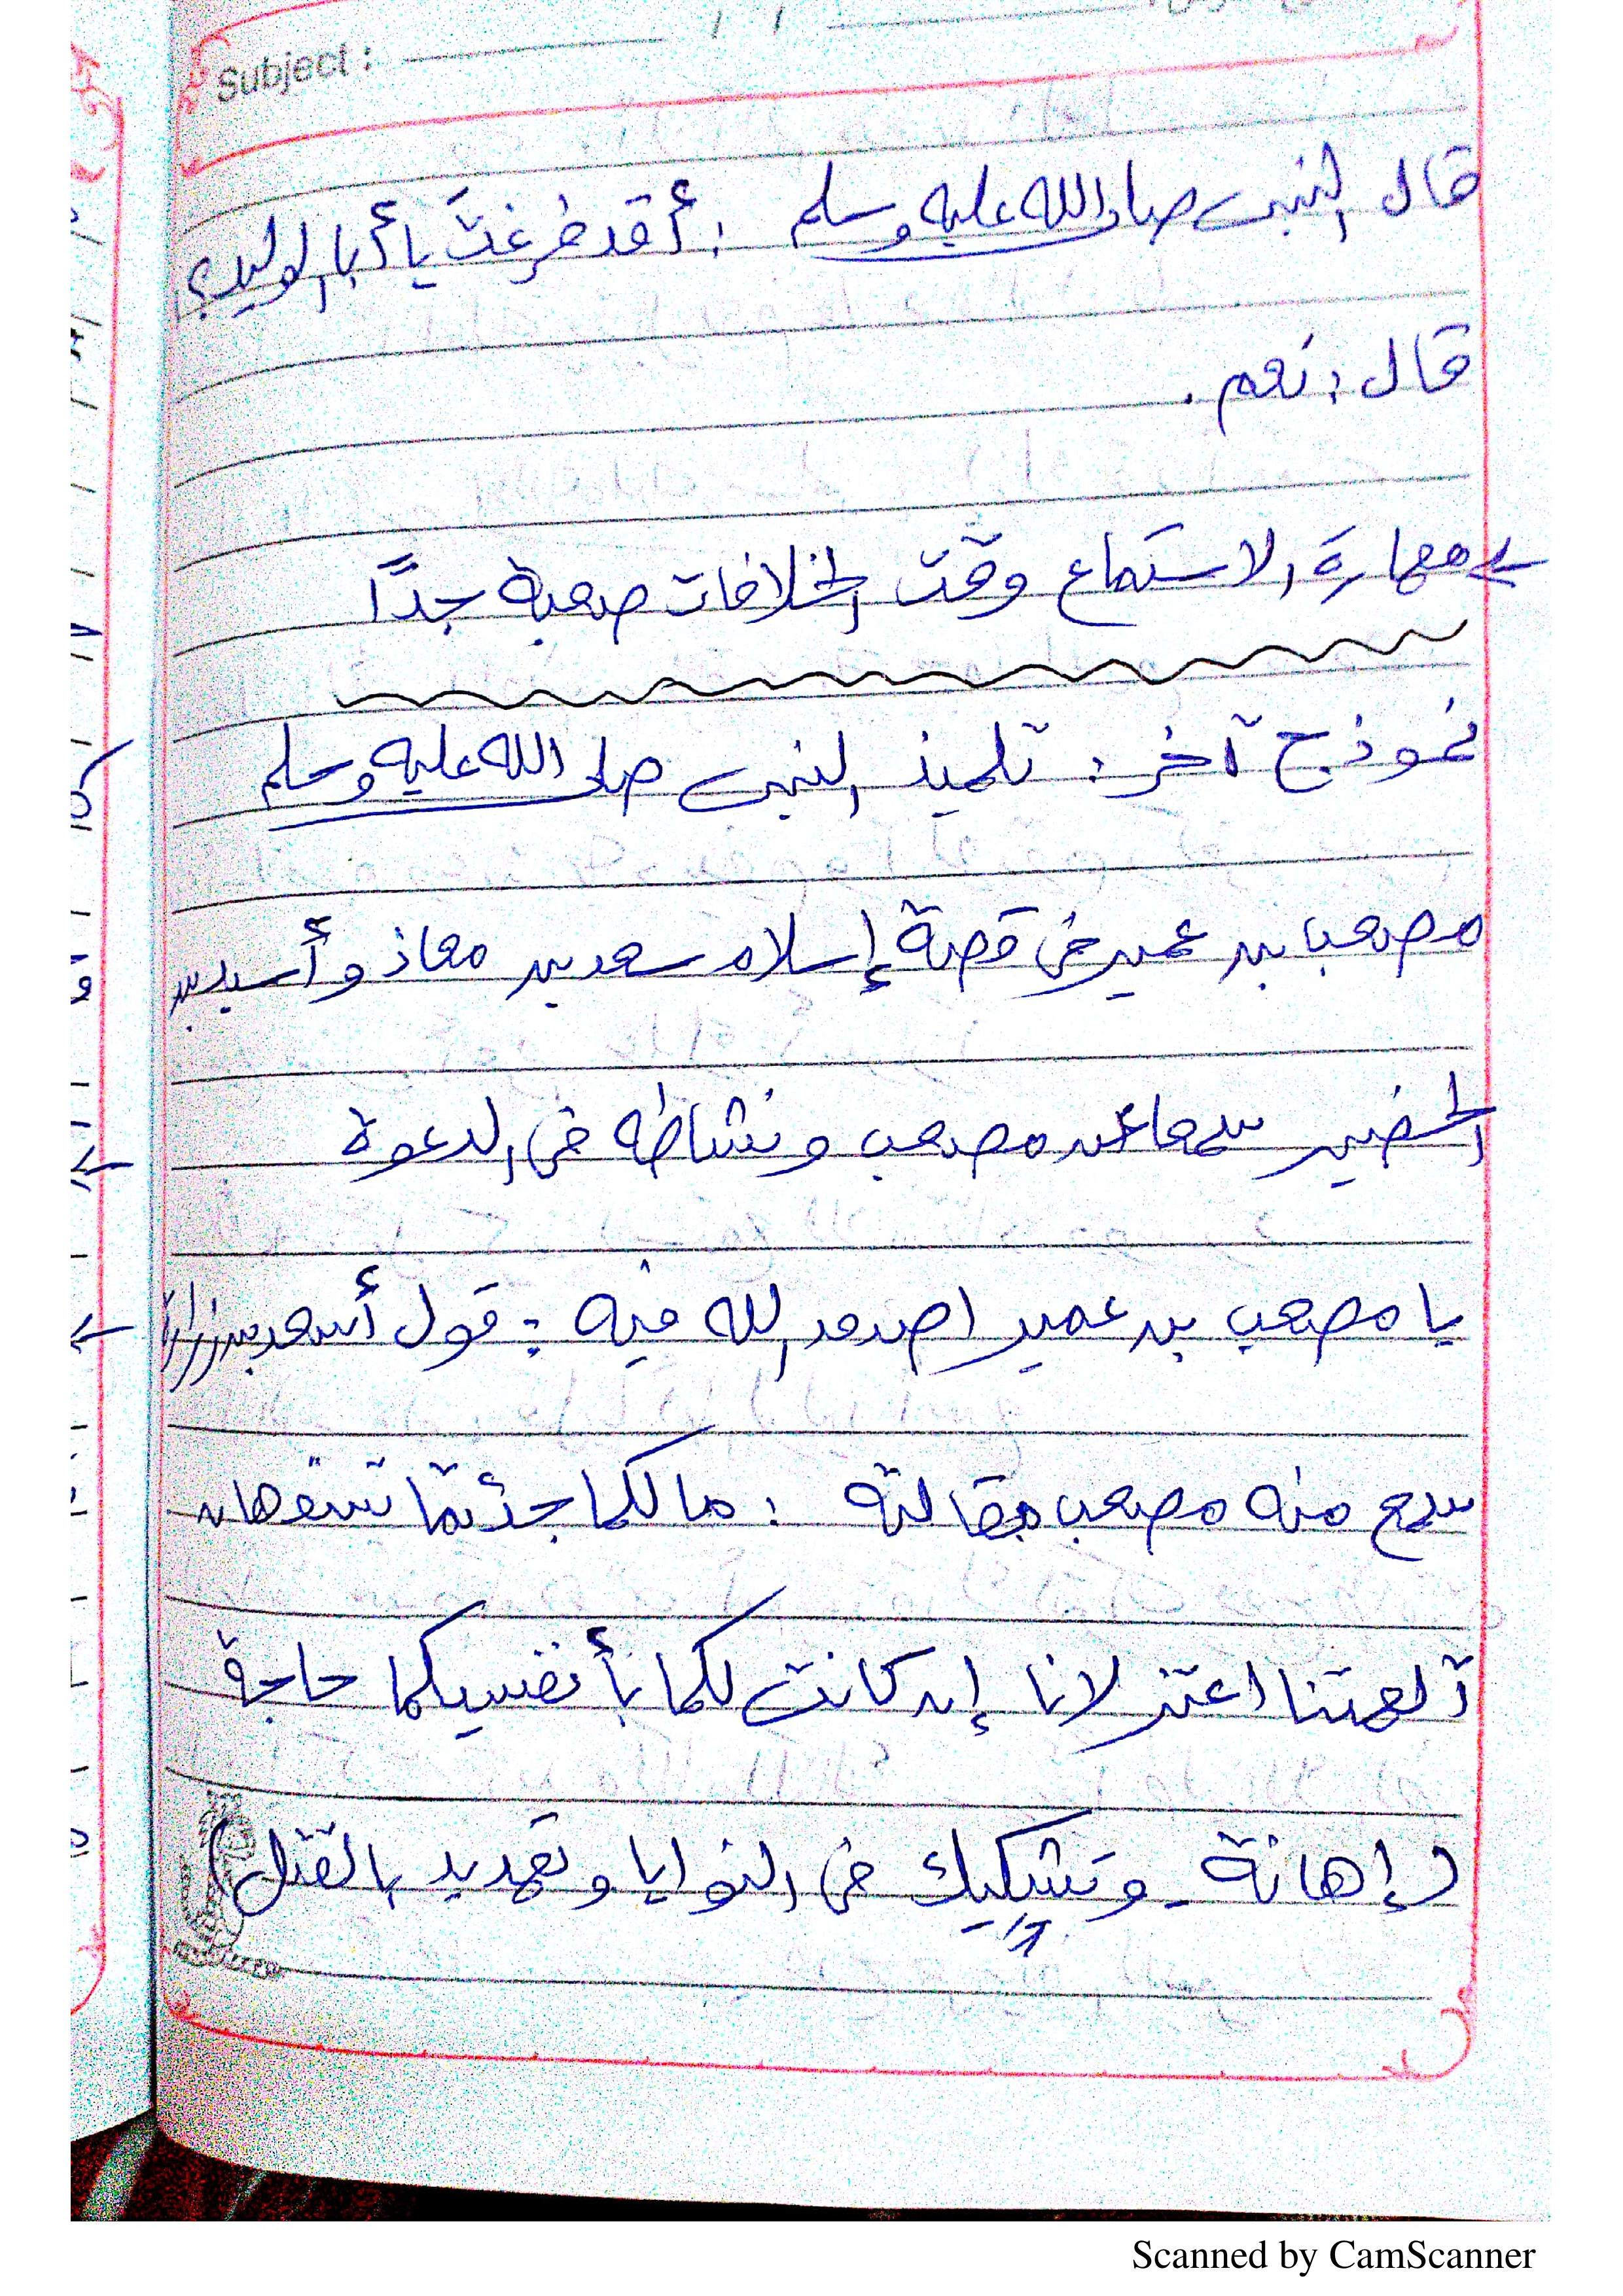 Subject :
قال النبى صلى الله عليه وسلم : أقد فرغتَ يا أبا الوليد؟
قال : نعم .
مهارة الاستماع وقت الخلافات صعبة جدًا
نموذج آخر : تلميذ النبى صلى الله عليه وسلم
مصعب بن عمير فى قصة إسلام سعد بن معاذ وأسيد بن
الحضير سمعا عن مصعب ونشاطه فى الدعوة
يا مصعب بن عمير اصدق الله فيه : قول أسعد بن زرارة
سمع منه مصعب مقالته : ما لكما جئتما تسفهان
آلهتنا اعتزلانا إن كانت لكما بأنفسيكما حاجة
( إهانة - وتشكيك فى النوايا وتهديد بالقتل )
Scanned by CamScanner